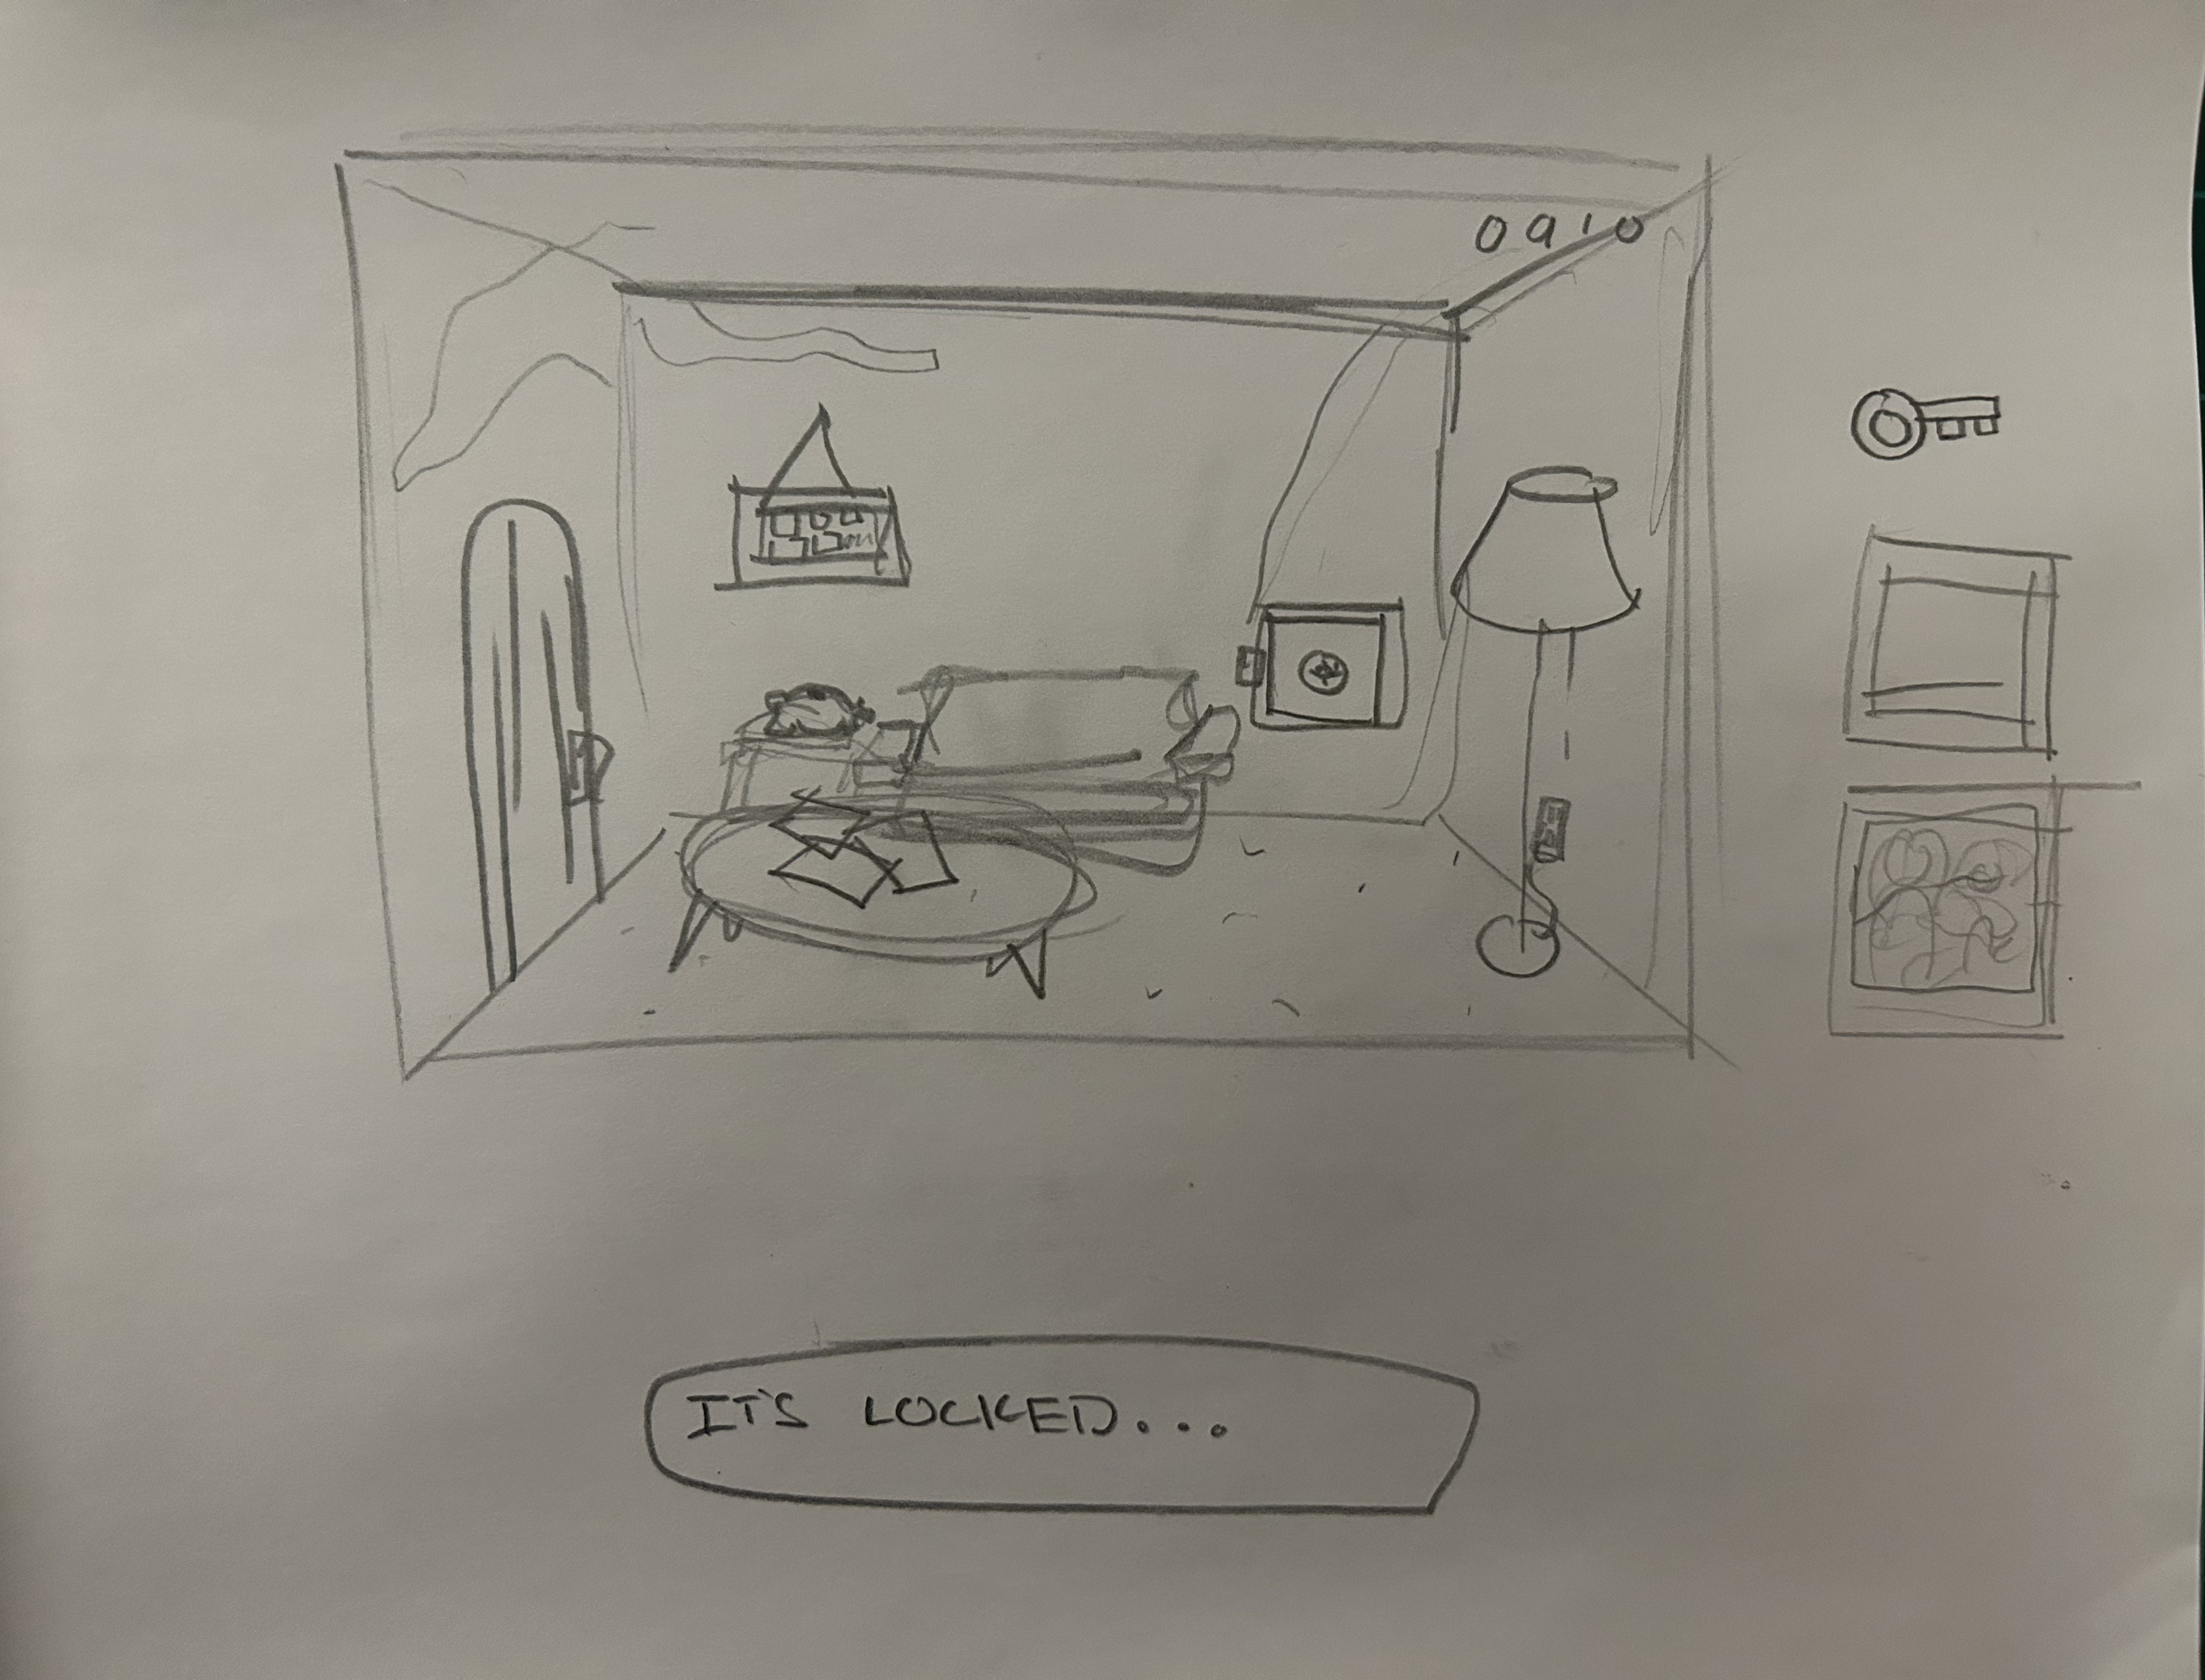 0910
IT'S LOCKED...